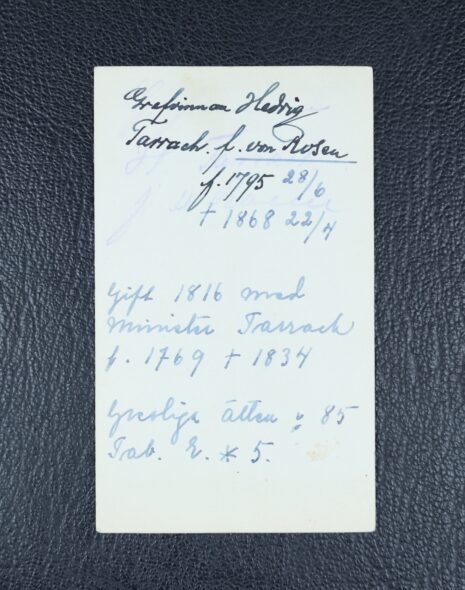 Grefvinnan Hedvig
Tarrach. f. von Rosen
f. 1795 28/6
† 1868 22/4
Gift 1816 med
Minister Tarrach
f. 1769 † 1834
Grefliga ätten 85
Tab. E. * 5.